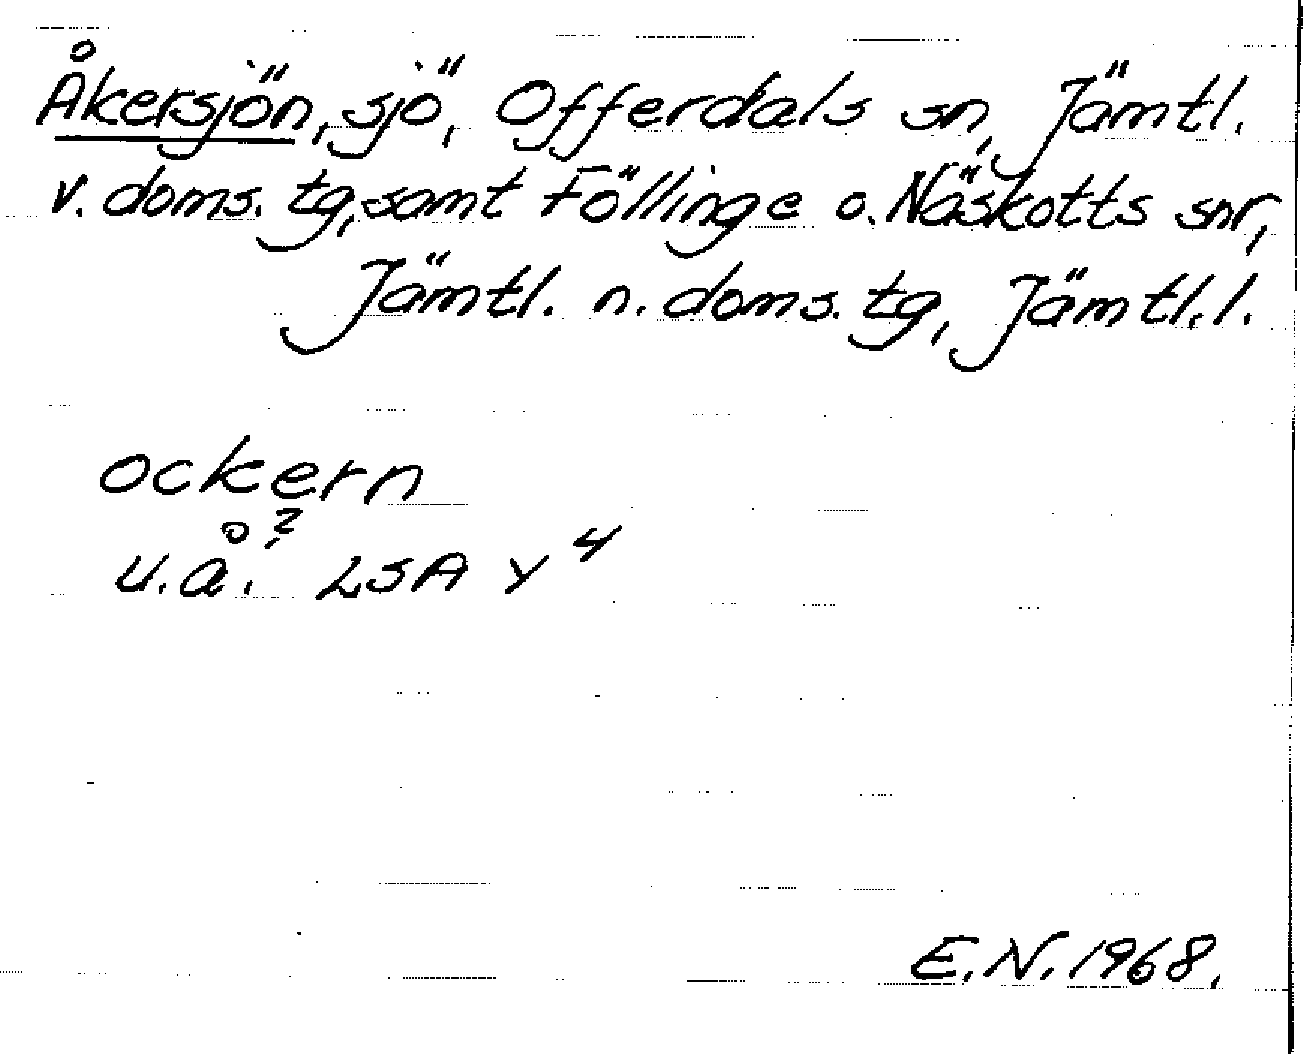 Åkersjön, sjö, Offerdals sn, Jämtl.
v. doms. tg, samt Föllinge o. Näskotts snr,
Jämtl. n. doms. tg, Jämtl. l.
ockern
u.å.? LSA Y 4
E.N. 1968.